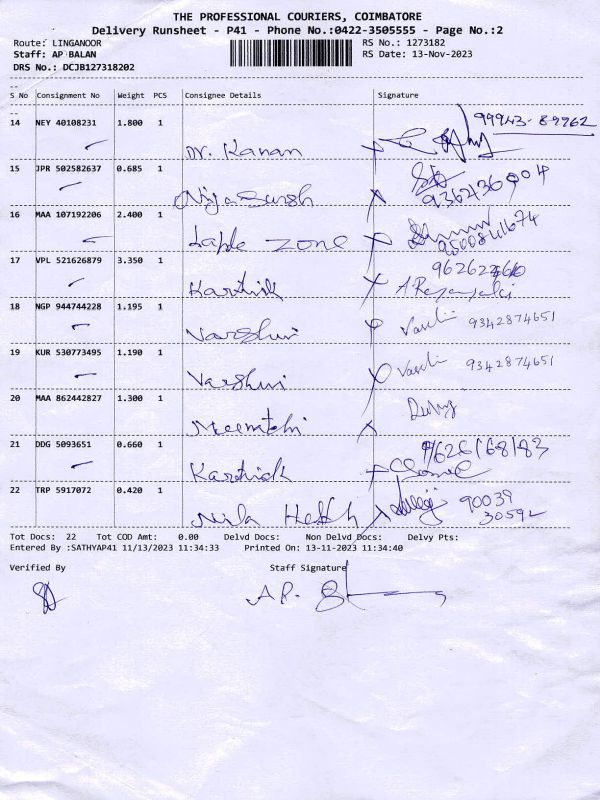 THE PROFESSIONAL COURIERS, COIMBATORE
Delivery Runsheet - P41 - Phone No.:0422-3505555 - Page No.:2
Route: LINGANOOR RS No.: 1273182
Staff: AP BALAN RS Date: 13-Nov-2023
DRS No.: DCJB127318202
S No Consignment No Weight PCS Consignee Details Signature
99943-89962
14 NEY 40108231 1.800 1
Dr. Kanan
15 JPR 502582637 0.685 1
9362436904
16 MAA 107192206 2.400 1
zone 9500841674
17 VPL 521626879 3.350 1
Karthik
18 NGP 944744228 1.195 1
Varshni 9342874651
19 KUR 530773495 1.190 1
Varshni 9342874651
20 MAA 862442827 1.300 1
21 DDG 5093651 0.660 1 9626168183
Karthick
22 TRP 5917072 0.420 1
Nila 90039
30592
Tot Docs: 22 Tot COD Amt: 0.00 Delvd Docs: Non Delvd Docs: Delvy Pts:
Entered By :SATHYAP41 11/13/2023 11:34:33 Printed On: 13-11-2023 11:34:40
Verified By Staff Signature
A.P.